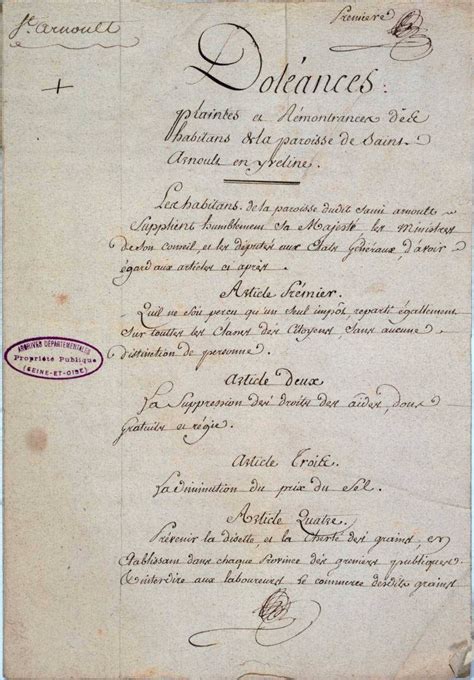 St. Arnoult
Premiere
Doléances:
plaintes et Rémontrances des
habitans de la paroisse de Saint-
Arnoult en yveline.
Les habitans de la paroisse dudit saint arnoult
Supplient humblement sa Majesté, les Ministres
de son conseil, et les députés aux Etats Généraux, d'avoir
égard aux articles ci après.
Article Prémier.
Qu'il ne soit perçu qu'un seul impôt reparti égallement
sur touttes les Classes des Citoyens, sans aucune
distinction de personne.
ARCHIVES DÉPARTEMENTALES
Propriété Publique
(SEINE-ET-OISE)
Article Deux
La Suppression des droits des aides, dons
Gratuits et régie.
Article Trois.
La diminution du prix du Sel.
Article Quatre.
Prévenir la disette, et la cherté des grains, en
Etablissant dans chaque Province des greniers publiques
& interdire aux laboureurs le commerce desdits grains